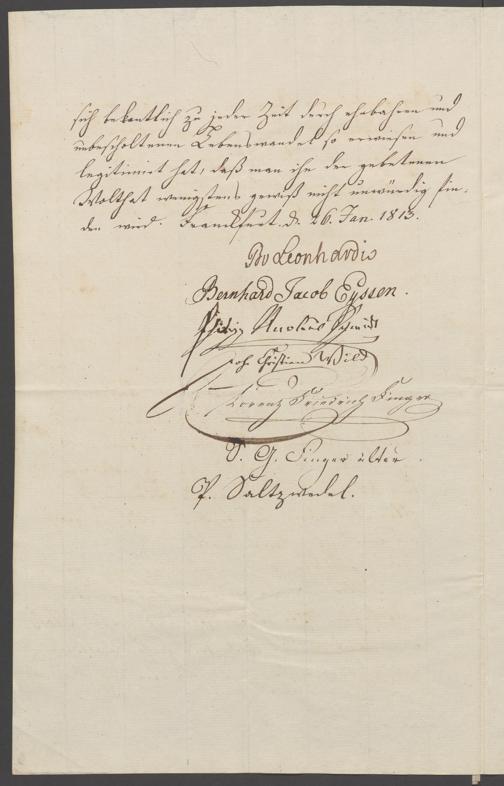 sich bekentlich zu jeder Zeit durch ehrbahren und
unbescholtenen Lebenswandel so erwiesen und
legitimirt hat, daß man ihn der gebetenen
Wolthat wenigstens gewiß nicht unwürdig fin-
den wird. Franckfurt. d. 26. Jan. 1813.
Leonhardis
Bernhard Jacob Eyssen.
Nicolaus Schmidt
Joh. Christian Wild
Lorenz Friedrich Finger
G. Finger älter
P. Saltzwedel.